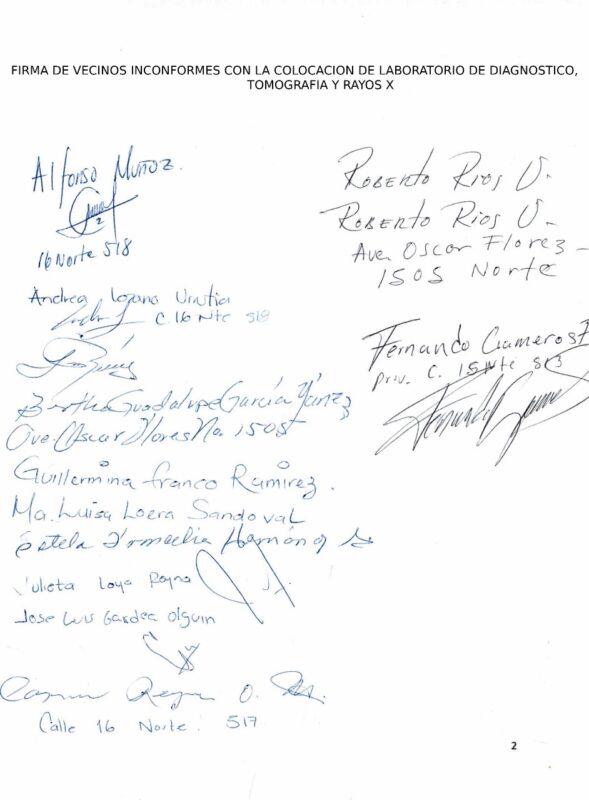 FIRMA DE VECINOS INCONFORMES CON LA COLOCACION DE LABORATORIO DE DIAGNOSTICO,
TOMOGRAFIA Y RAYOS X
Alfonso Muñoz.
16 Norte 518
Andrea Lozano
C. 16 Nte 518
Bertha Guadalupe García Yánez
Ave. Oscar Flores No. 1505
Guillermina Franco Ramirez.
Ma. Luisa Loera Sandoval
Estela
Julieta Loya Reyna
Jose Luis Gardea Olguin
O.
Calle 16 Norte. 517
Roberto Rios U.
Roberto Rios U.
Ave. Oscar Florez
1505 Norte
Fernando Gameros
Priv. C. 15 Nte 513
2